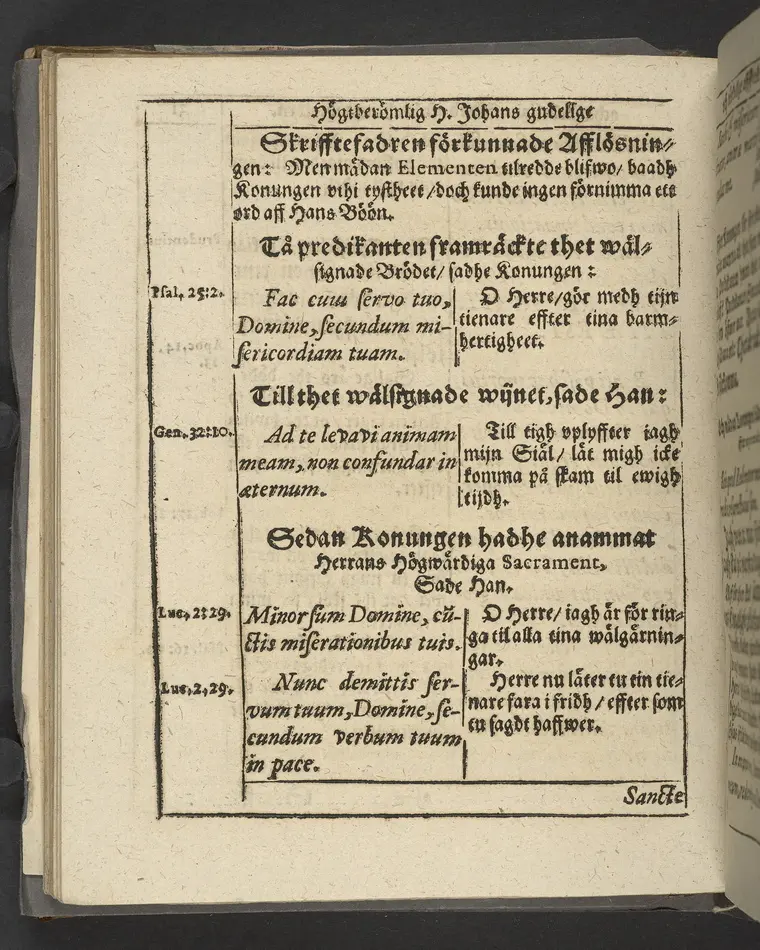 Högtberömlig H. Johans gudelige
Skrifftefadren förkunnade Afflösnin-
gen: Men mädan Elementen tilredde blifwo/ baadh
Konungen vthi tystheet/doch kunde ingen förnimma ett
ord aff Hans Böön.
Tå predikanten framräckte thet wäl-
signade Brödet/ sadhe Konungen:
Psal. 25:2.
Fac cum servo tuo,
Domine, secundum mi-
sericordiam tuam.
O Herre/gör medh tijn
tienare effter tina barm-
hertigheet.
Till thet wälsignade wijnet, sade Han:
Gen. 32:10.
Ad te levavi animam
meam, non confundar in
æternum.
Till tigh vplyffter iagh
mijn Siäl/ lät migh icke
komma på skam til ewigh
tijdh.
Sedan Konungen hadhe anammat
Herrans Högwärdiga Sacrament,
Sade Han.
Luc. 2:29.
Minor sum Domine, cũ-
ctis miserationibus tuis.
O Herre/ iagh är för rin-
ga til alla tina wälgärnin-
gar.
Luc. 2, 29.
Nunc demittis ser-
vum tuum, Domine, se-
cundum verbum tuum
in pace.
Herre nu läter tu tin tie-
nare fara i fridh / effter som
tu sagdt haffwer.
Sancte